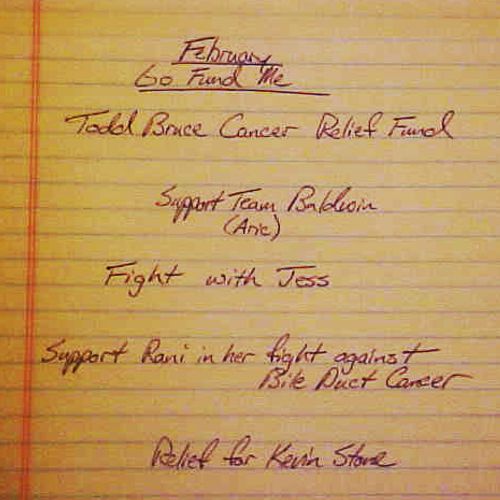 February
Go Fund Me
Todd Bruce Cancer Relief Fund
Support Team Baldwin
(Aric)
Fight with Jess
Support Rani in her fight against
Bile Duct Cancer
Relief for Kevin Stone